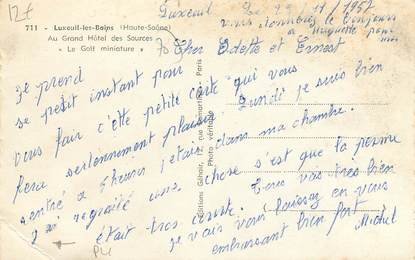 12f
711 - Luxeuil-les-Bains (Haute-Saône)
Au Grand Hôtel des Sources
" Le Golf miniature "
Luxeuil Le 29 / 11 / 1957
vous donnerez le bonjour
a Huguette pour
moi
Cher Odette et Ernest
Je prend
se petit instant pour
vous fair c'ête petite carte qui vous
fera serténement plaisir. Lundi je suis bien
rentré a 5 heures j'etais dans ma chambre.
J'ai regraité une chose s'est que la
était tres courte. Tous vas très bien
je vais vous laissez en vous
embrassant bien fort
Michel
Editions Gélhoir, rue Paris
Photo véritable